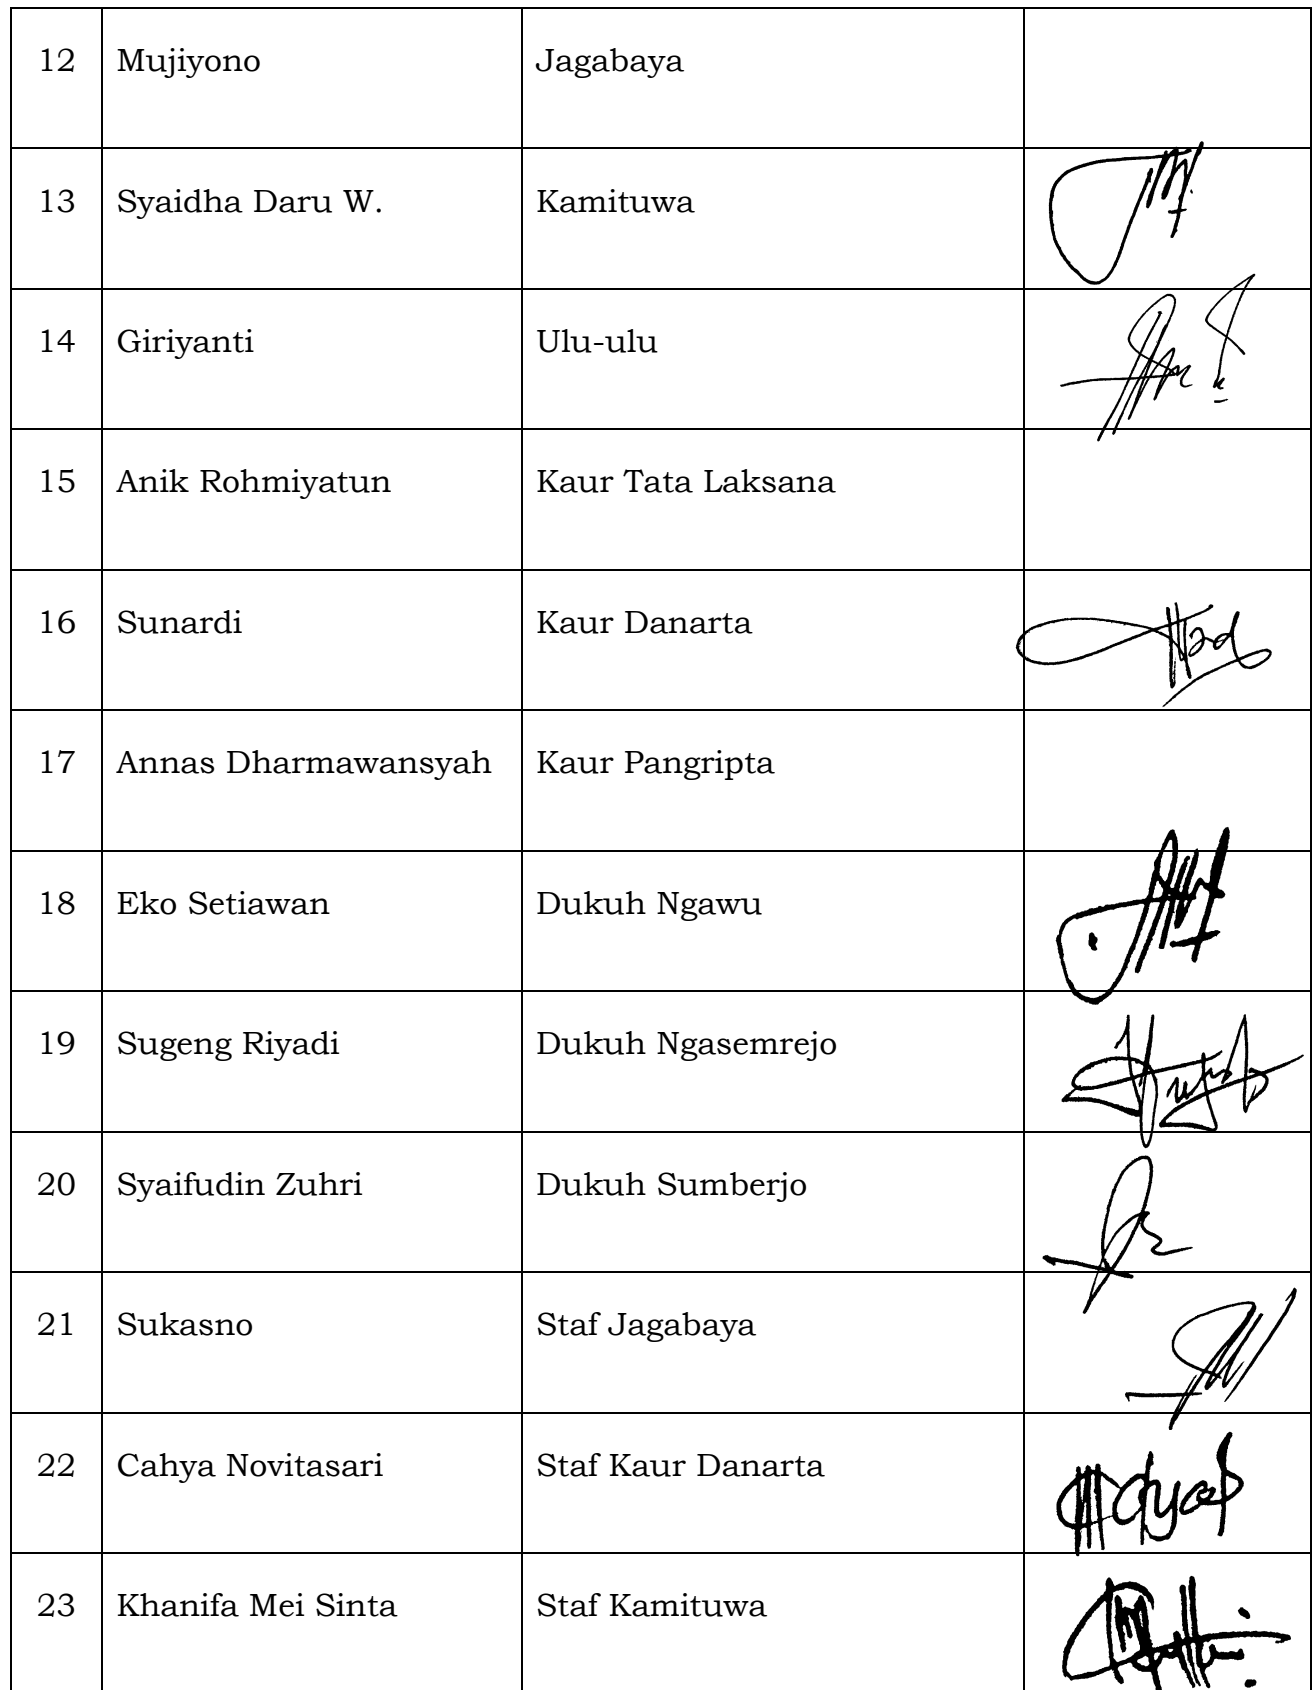 12 Mujiyono Jagabaya
13 Syaidha Daru W. Kamituwa
14 Giriyanti Ulu-ulu
15 Anik Rohmiyatun Kaur Tata Laksana
16 Sunardi Kaur Danarta
17 Annas Dharmawansyah Kaur Pangripta
18 Eko Setiawan Dukuh Ngawu
19 Sugeng Riyadi Dukuh Ngasemrejo
20 Syaifudin Zuhri Dukuh Sumberjo
21 Sukasno Staf Jagabaya
22 Cahya Novitasari Staf Kaur Danarta
23 Khanifa Mei Sinta Staf Kamituwa